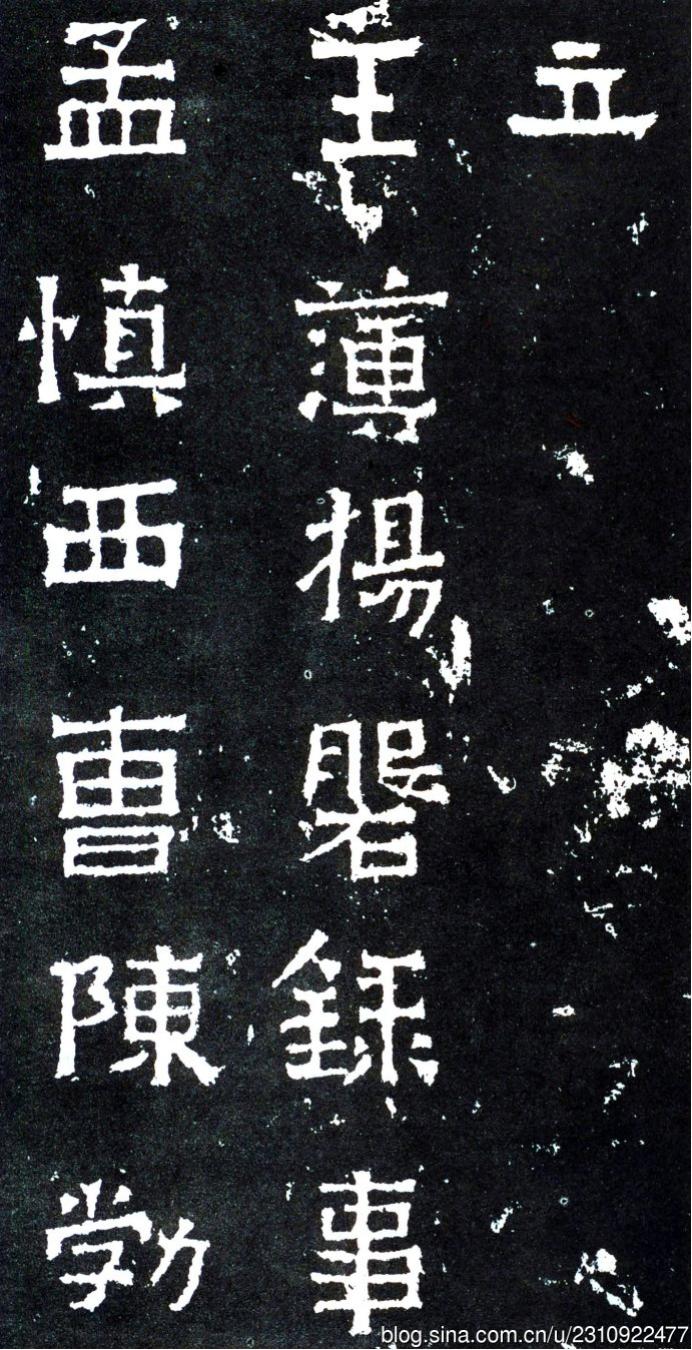 立
主薄揚磐錄事
孟慎西曹陳勃
blog.sina.com.cn/u/2310922477